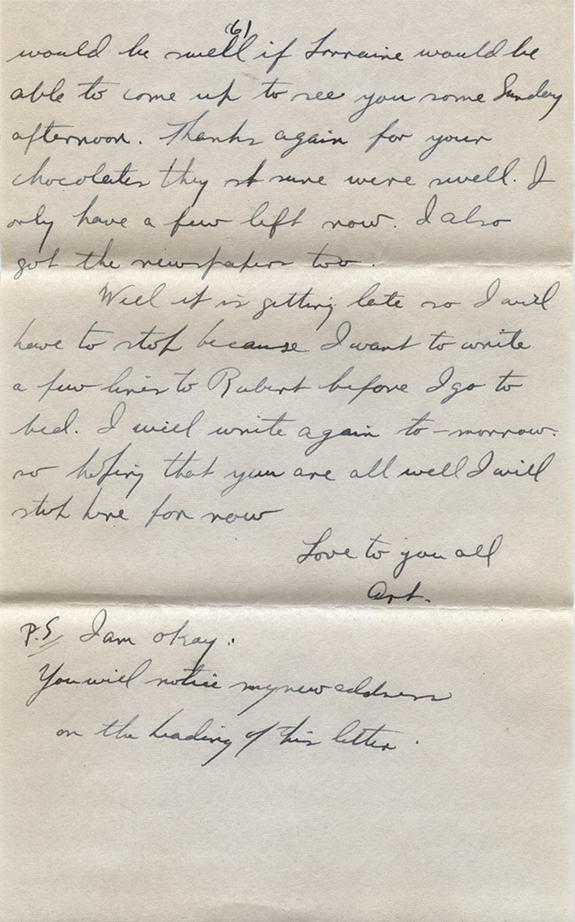 (6)
would be swell if Lorraine would be
able to come up to see you some Sunday
afternoon. Thanks again for your
chocolates they st sure were swell. I
only have a few left now. I also
got the newspapers too.
Well it is getting late so I will
have to stop because I want to write
a few lines to Robert before I go to
bed. I will write again to-morrow.
so hoping that you are all well I will
stop here for now
Love to you all
Art.
P.S. I am okay.
You will notice my new address
on the heading of this letter.